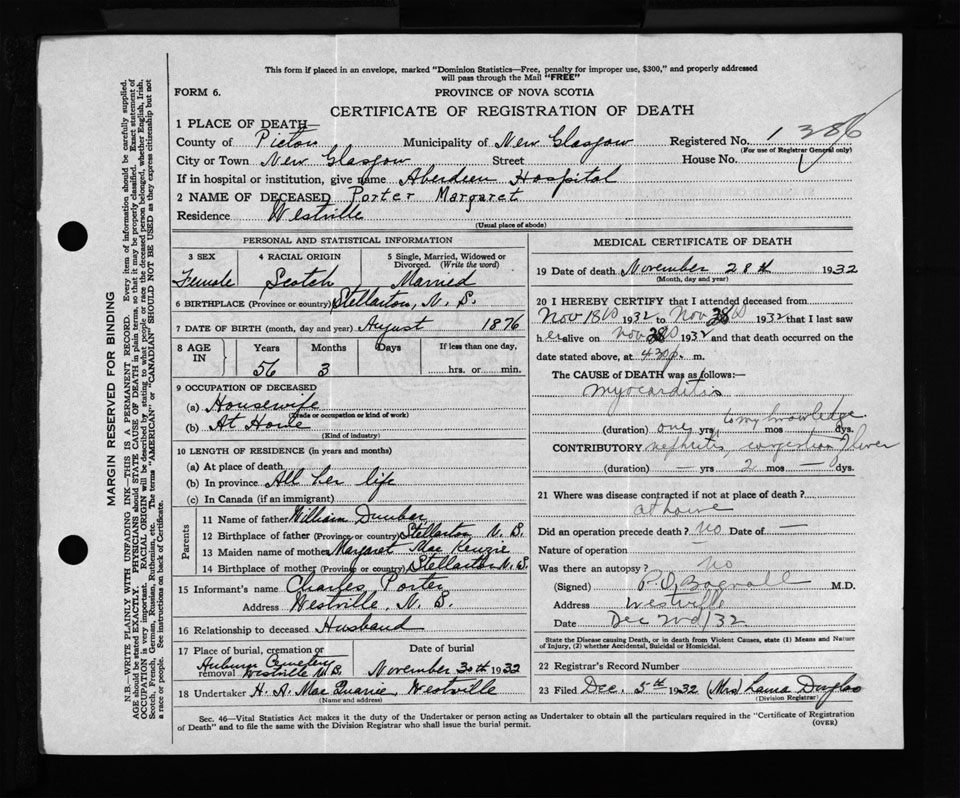 This form if placed in an envelope, marked "Dominion Statistics—Free, penalty for improper use, $300," and properly addressed
will pass through the Mail "FREE"
FORM 6.
PROVINCE OF NOVA SCOTIA
CERTIFICATE OF REGISTRATION OF DEATH
1 PLACE OF DEATH—
County of Pictou Municipality of New Glasgow Registered No. 1386
(For use of Registrar General only)
City or Town New Glasgow Street House No.
If in hospital or institution, give name Aberdeen Hospital
2 NAME OF DECEASED Porter Margaret
Residence Westville
(Usual place of abode)
PERSONAL AND STATISTICAL INFORMATION
3 SEX
Female
4 RACIAL ORIGIN
Scotch
5 Single, Married, Widowed or
Divorced. (Write the word)
Married
6 BIRTHPLACE (Province or country) Stellarton, N. S.
7 DATE OF BIRTH (month, day and year) August 1876
8 AGE
IN
Years
56
Months
3
Days
If less than one day,
hrs. or min.
9 OCCUPATION OF DECEASED
(a) Housewife
(Trade or occupation or kind of work)
(b) At Home
(Kind of industry)
10 LENGTH OF RESIDENCE (in years and months)
(a) At place of death
(b) In province All her life
(c) In Canada (if an immigrant)
Parents
11 Name of father William Dunbar
12 Birthplace of father (Province or country) Stellarton N. S.
13 Maiden name of mother Margaret MacKenzie
14 Birthplace of mother (Province or country) Stellarton N. S.
15 Informant's name Charles Porter
Address Westville, N. S.
16 Relationship to deceased Husband
17 Place of burial, cremation or
removal Auburn Cemetery
Westville N. S.
Date of burial
November 30th 1932
18 Undertaker H. A. MacQuarrie Westville
(Name and address)
MEDICAL CERTIFICATE OF DEATH
19 Date of death November 28th 1932
(Month, day and year)
20 I HEREBY CERTIFY that I attended deceased from
Nov 18th 1932 to Nov 28th 1932 that I last saw
her alive on Nov 28th 1932 and that death occurred on the
date stated above, at 4 30 p. m.
The CAUSE of DEATH was as follows:—
Myocarditis
to my knowledge
(duration) one yrs. mos — dys.
CONTRIBUTORY nephritis congestion of liver
(duration) — yrs 2 mos — dys.
21 Where was disease contracted if not at place of death?
at home
Did an operation precede death? no Date of —
Nature of operation
Was there an autopsy? no
(Signed) Bagnall M.D.
Address Westville
Date Dec 2nd/32
State the Disease causing Death, or in death from Violent Causes, state (1) Means and Nature
of Injury, (2) whether Accidental, Suicidal or Homicidal.
22 Registrar's Record Number
23 Filed Dec. 5th 1932 (Mrs) Douglas
(Division Registrar)
Sec. 46—Vital Statistics Act makes it the duty of the Undertaker or person acting as Undertaker to obtain all the particulars required in the "Certificate of Registration
of Death" and to file the same with the Division Registrar who shall issue the burial permit.
(OVER)
MARGIN RESERVED FOR BINDING
N.B.—WRITE PLAINLY WITH UNFADING INK—THIS IS A PERMANENT RECORD. Every item of information should be carefully supplied.
AGE should be stated EXACTLY. PHYSICIANS should STATE CAUSE OF DEATH in plain terms, so that it may be properly classified. Exact statement of
OCCUPATION is very important. RACIAL ORIGIN will be described by stating to what people or race the deceased person belonged, whether English, Irish,
Scotch, French, German, Russian, Ruthenian, etc. The terms "AMERICAN" or "CANADIAN" SHOULD NOT BE USED as they express citizenship but not
a race or people. See instructions on back of Certificate.